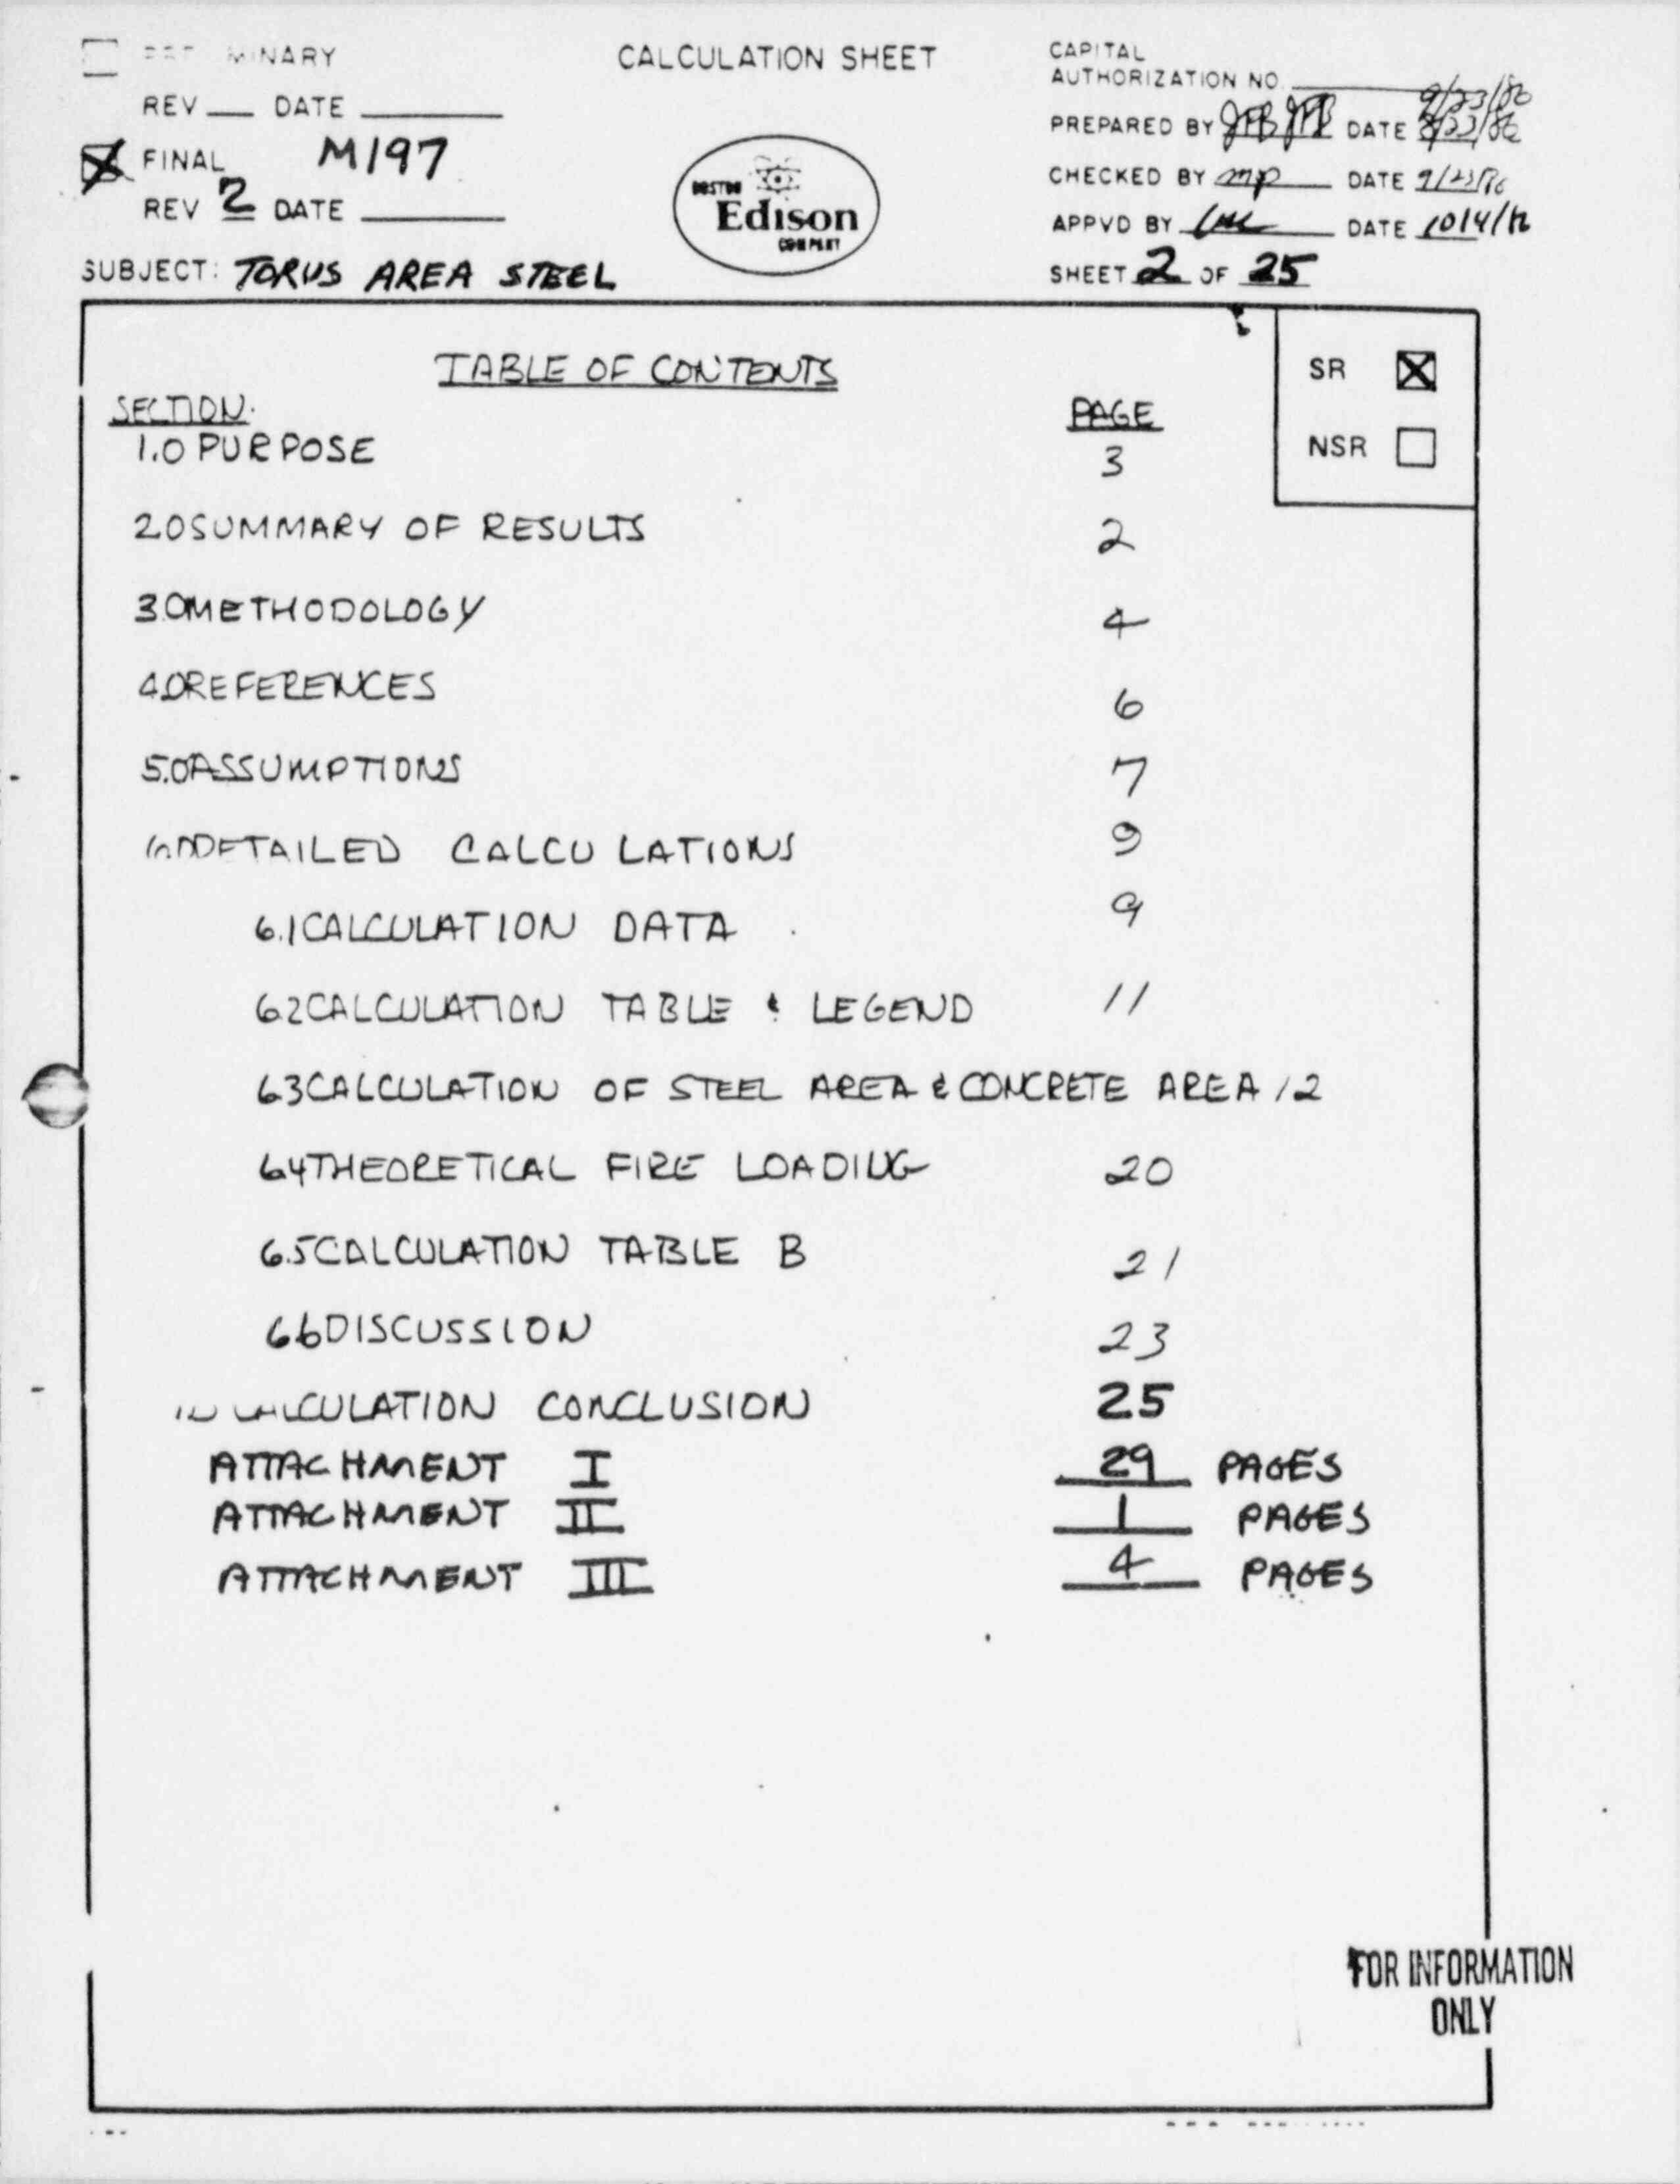 CALCULATION SHEET
REV DATE
FINAL M197
REV 2 DATE
SUBJECT: TORUS AREA STEEL
BOSTON
Edison
COMPANY
CAPITAL
AUTHORIZATION NO.
PREPARED BY DATE
CHECKED BY DATE
APPVD BY DATE
SHEET 2 OF 25
SR
NSR
TABLE OF CONTENTS
SECTION. PAGE
1.0 PURPOSE 3
2.0 SUMMARY OF RESULTS 2
3.0 METHODOLOGY 4
4.0 REFERENCES 6
5.0 ASSUMPTIONS 7
DETAILED CALCULATIONS 9
6.1 CALCULATION DATA 9
6.2 CALCULATION TABLE & LEGEND 11
6.3 CALCULATION OF STEEL AREA & CONCRETE AREA 12
6.4 THEORETICAL FIRE LOADING 20
6.5 CALCULATION TABLE B 21
6.6 DISCUSSION 23
CALCULATION CONCLUSION 25
ATTACHMENT I 29 PAGES
ATTACHMENT II 1 PAGES
ATTACHMENT III 4 PAGES
FOR INFORMATION
ONLY